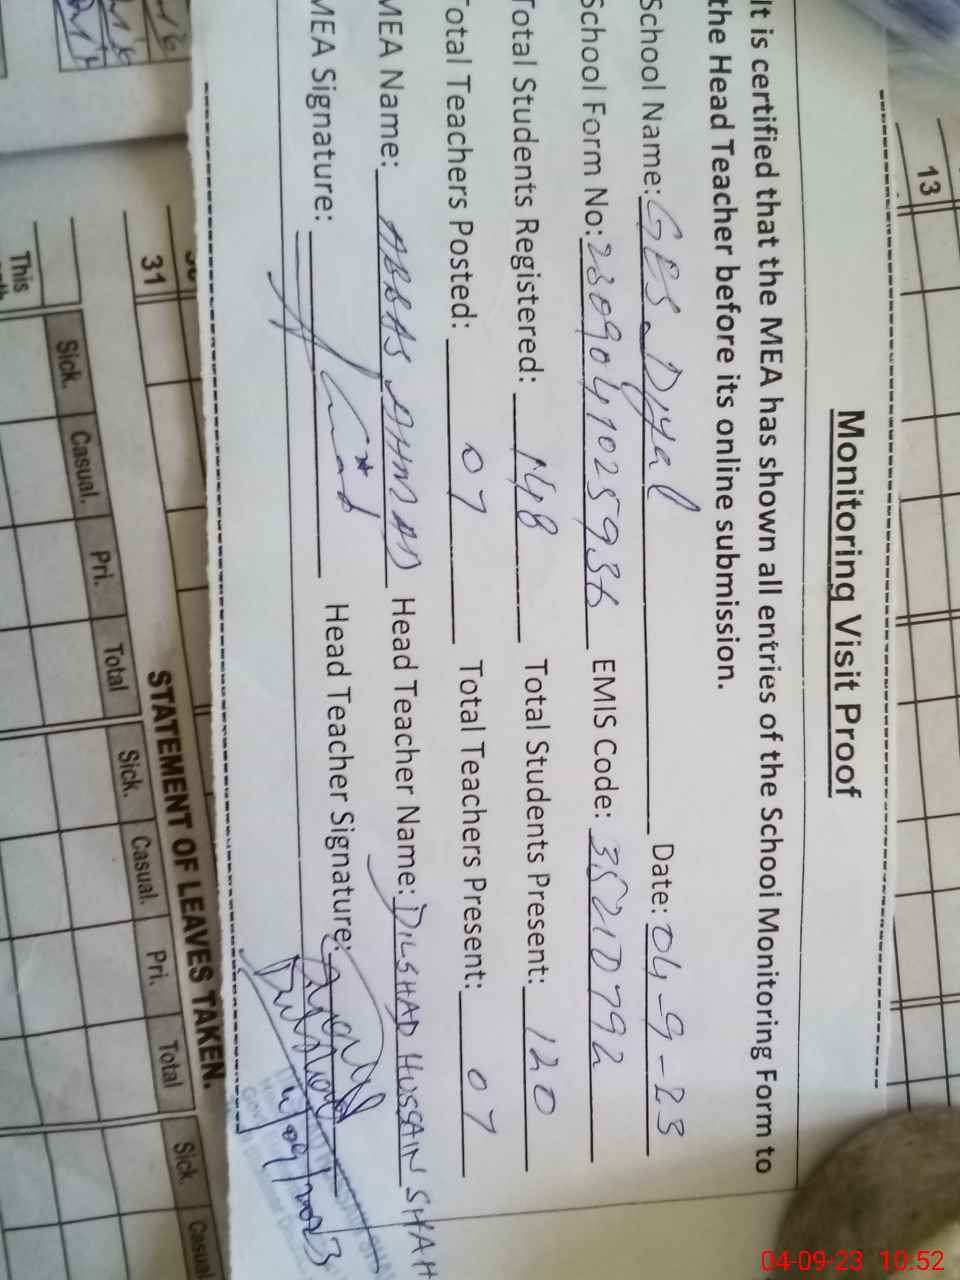 Monitoring Visit Proof
It is certified that the MEA has shown all entries of the School Monitoring Form to
the Head Teacher before its online submission.
School Name: GES Dyal Date: 04-9-23
School Form No: 2309041025936 EMIS Code: 35210792
Total Students Registered: 148 Total Students Present: 120
Total Teachers Posted: 07 Total Teachers Present: 07
MEA Name: ABBAS AHMAD Head Teacher Name: DILSHAD HUSSAIN SHAH
MEA Signature: Head Teacher Signature:
13
31
STATEMENT OF LEAVES TAKEN.
Sick. Casual. Pri. Total Sick. Casual. Pri. Total Sick. Casual
This
04-09-23 10:52